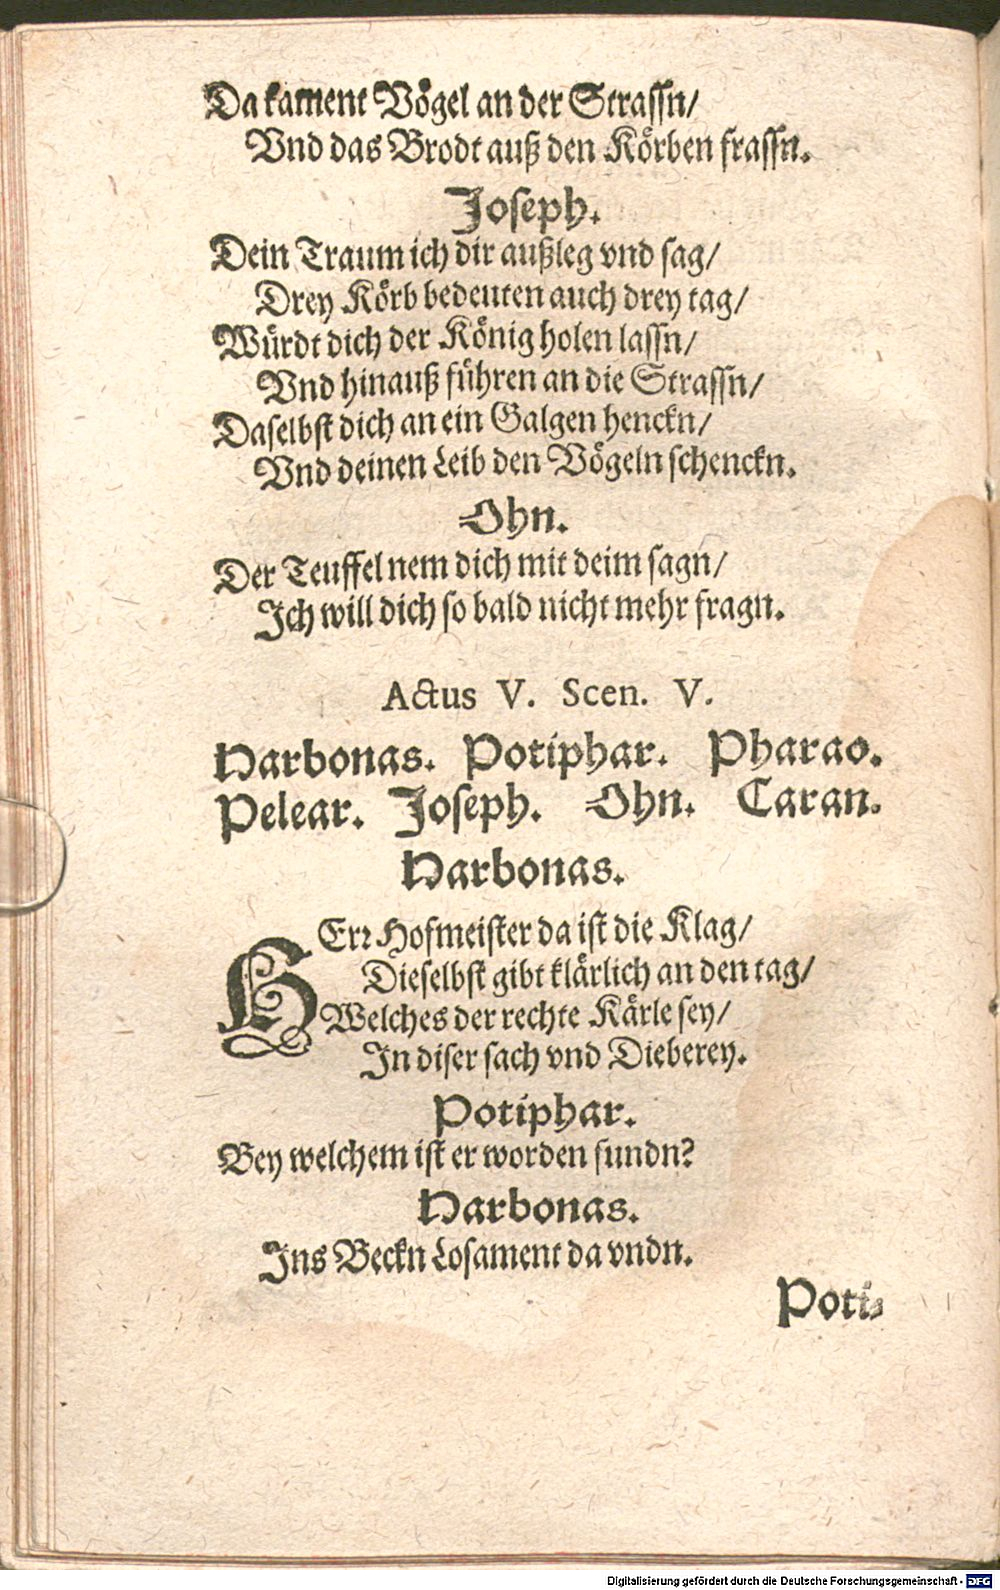 Da kament Vögel an der Strassn/
Vnd das Brodt auß den Körben frassn.
Joseph.
Dein Traum ich dir außleg vnd sag/
Drey Körb bedeuten auch drey tag/
Würdt dich der König holen lassn/
Vnd hinauß führen an die Strassn/
Daselbst dich an ein Galgen henckn/
Vnd deinen Leib den Vögeln schenckn.
Ohn.
Der Teuffel nem dich mit deim sagn/
Ich will dich so bald nicht mehr fragn.
Actus V. Scen. V.
Narbonas. Potiphar. Pharao.
Pelear. Joseph. Ohn. Caran.
Narbonas.
HErr Hofmeister da ist die Klag/
Dieselbst gibt klärlich an den tag/
Welches der rechte Kärle sey/
In diser sach vnd Dieberey.
Potiphar.
Bey welchem ist er worden fundn?
Narbonas.
Ins Beckn Losament da vndn.
Poti-
Digitalisierung gefördert durch die Deutsche Forschungsgemeinschaft - DFG